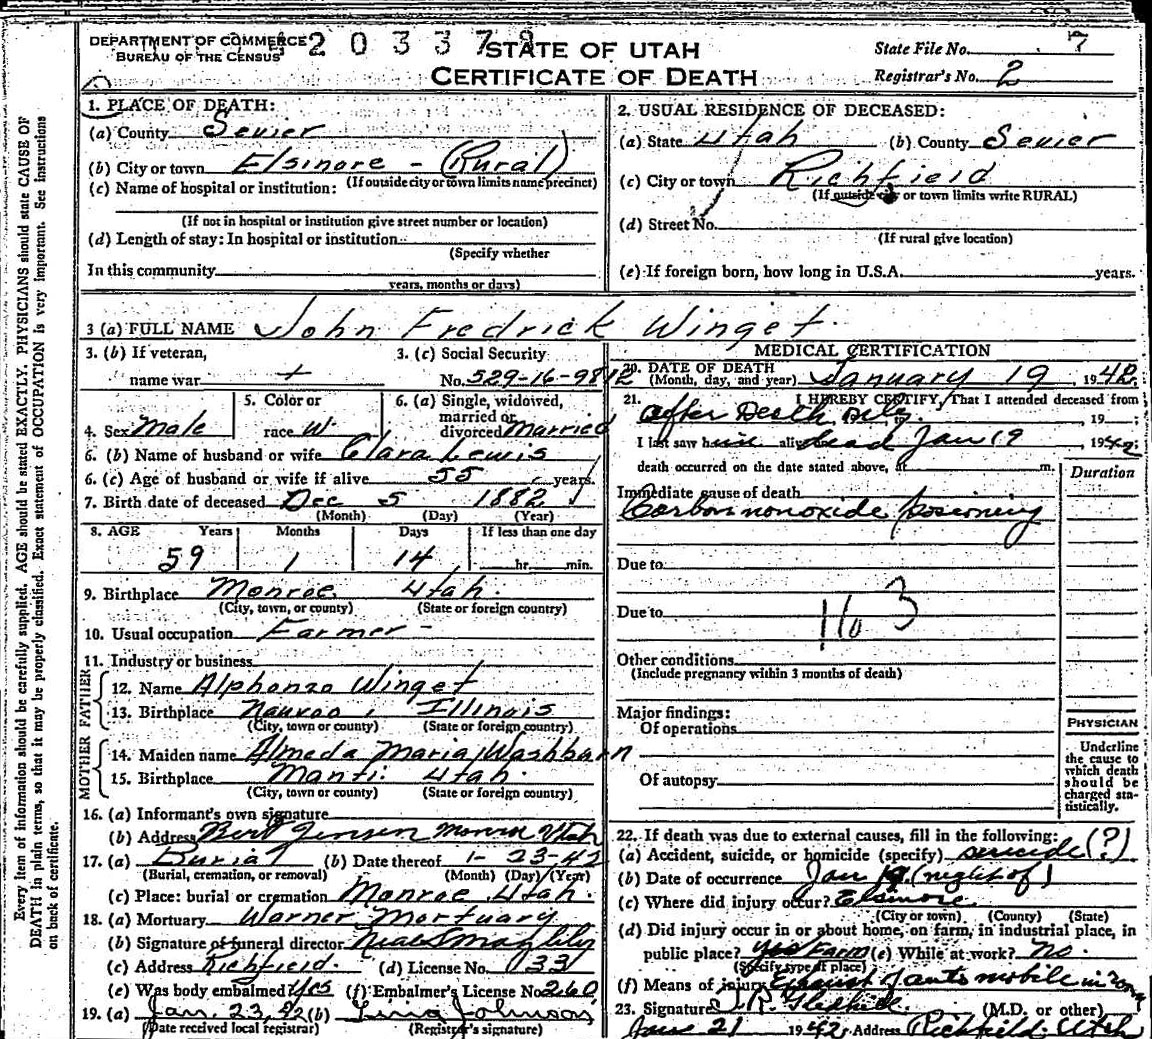 DEPARTMENT OF COMMERCE
BUREAU OF THE CENSUS
STATE OF UTAH
CERTIFICATE OF DEATH
State File No. 7
Registrar's No. 2
Every item of information should be carefully supplied. AGE should be stated EXACTLY. PHYSICIANS should state CAUSE OF
DEATH in plain terms, so that it may be properly classified. Exact statement of OCCUPATION is very important. See instructions
on back of certificate.
1. PLACE OF DEATH:
(a) County Sevier
(b) City or town Elsinore - (Rural)
(If outside city or town limits name precinct)
(c) Name of hospital or institution:
(If not in hospital or institution give street number or location)
(d) Length of stay: In hospital or institution
(Specify whether
In this community
years, months or days)
2. USUAL RESIDENCE OF DECEASED:
(a) State Utah (b) County Sevier
(c) City or town Richfield
(If outside city or town limits write RURAL)
(d) Street No.
(If rural give location)
(e) If foreign born, how long in U.S.A. years.
3 (a) FULL NAME John Fredrick Winget
3. (b) If veteran,
name war
3. (c) Social Security
No. 529-16-9812
4. Sex Male
5. Color or
race W.
6. (a) Single, widowed,
married or
divorced Married
6. (b) Name of husband or wife Clara Lewis
6. (c) Age of husband or wife if alive 55 years.
7. Birth date of deceased Dec 5 1882
(Month) (Day) (Year)
8. AGE Years Months Days If less than one day
59 1 14 hr. min.
9. Birthplace Monroe Utah.
(City, town, or county) (State or foreign country)
10. Usual occupation Farmer -
11. Industry or business
FATHER
12. Name Alphonzo Winget
13. Birthplace Nauvoo, Illinois
(City, town or county) (State or foreign country)
MOTHER
14. Maiden name Almeda Maria Washburn
15. Birthplace Manti Utah.
(City, town or county) (State or foreign country)
16. (a) Informant's own signature
(b) Address Bert Jensen Monroe Utah
17. (a) Burial (b) Date thereof 1- 23-42
(Burial, cremation, or removal) (Month) (Day) (Year)
(c) Place: burial or cremation Monroe Utah.
18. (a) Mortuary Warner Mortuary
(b) Signature of funeral director Neal S Magleby
(c) Address Richfield. (d) License No. 133
(e) Was body embalmed Yes (f) Embalmer's License No. 260
19. (a) Jan. 23, 42 (b) Johnson
(Date received local registrar) (Registrar's signature)
MEDICAL CERTIFICATION
20. DATE OF DEATH
(Month, day, and year) January 19, 1942
21. I HEREBY CERTIFY, That I attended deceased from
after Death only, 19
I last saw him alive dead Jan 19, 1942;
death occurred on the date stated above, at m.
Duration
Immediate cause of death
Carbon monoxide poisoning
Due to
Due to
163
Other conditions
(Include pregnancy within 3 months of death)
Major findings:
Of operations
Of autopsy
PHYSICIAN
Underline
the cause to
which death
should be
charged sta-
tistically.
22. If death was due to external causes, fill in the following:
(a) Accident, suicide, or homicide (specify) suicide (?)
(b) Date of occurrence Jan 19 (night of)
(c) Where did injury occur? Elsinore
(City or town) (County) (State)
(d) Did injury occur in or about home, on farm, in industrial place, in
public place? yes Farm (e) While at work? no.
(Specify type of place)
(f) Means of injury Exhaust of automobile in
23. Signature (M.D. or other)
Jan 21 1942 Address Richfield Utah